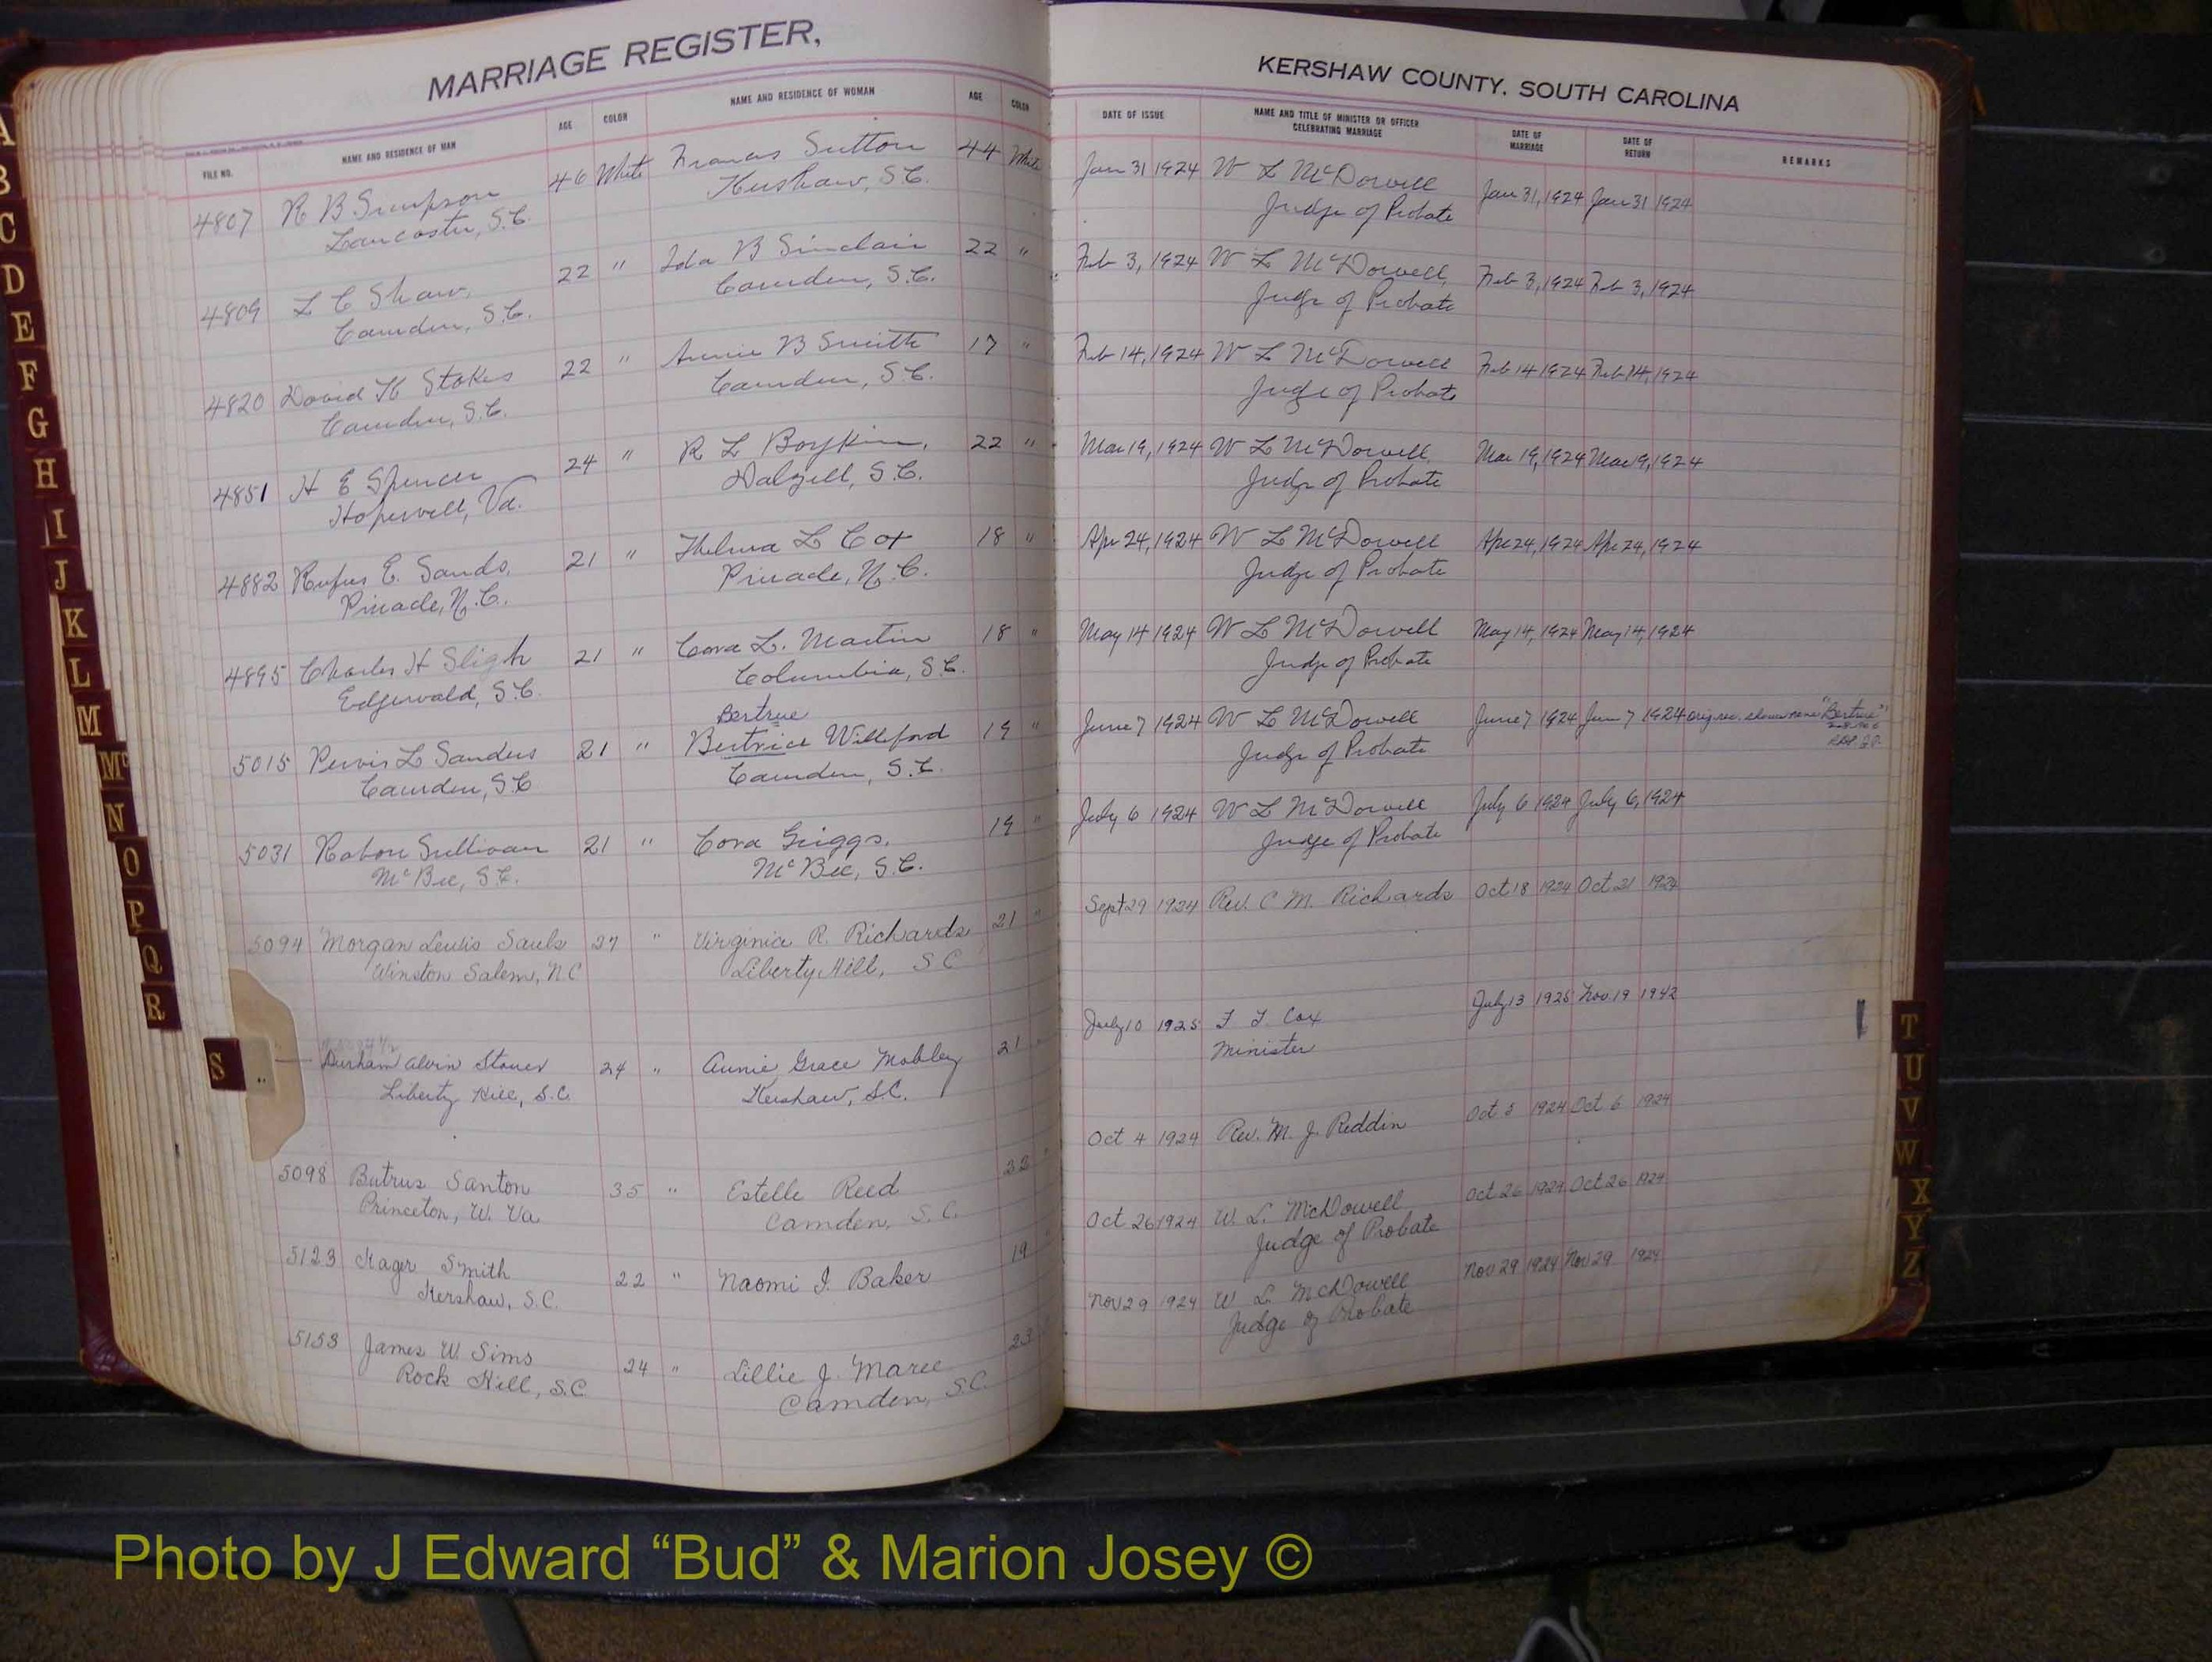 MARRIAGE REGISTER,
FILE NO. NAME AND RESIDENCE OF MAN AGE COLOR NAME AND RESIDENCE OF WOMAN AGE COLOR
4807 R B Simpson 46 White Frances Sutton 44 White
Lancaster, S.C. Kershaw, S.C.
4809 L C Shaw, 22 " Ida B Sinclair 22 "
Camden, S.C. Camden, S.C.
4820 David K Stokes 22 " Annie B Smith 17 "
Camden, S.C. Camden, S.C.
4851 H E Spencer 24 " R L Boykin, 22 "
Hopewell, Va. Dalzell, S.C.
4882 Rufus E. Sands, 21 " Thelma L Cox 18 "
Pinacle, N.C. Pinacle, N.C.
4895 Charles H Sligh 21 " Cora L. Martin 18 "
Edgewald, S.C. Columbia, S.C.
Bertrue
5015 Pervis L Sanders 21 " Bertrice Williford 19 "
Camden, S.C Camden, S.C.
5031 Rabon Sullivan 21 " Cora Griggs, 19 "
McBee, S.C. McBee, S.C.
5094 Morgan Lewis Sauls 27 " Virginia R. Richards 21 "
Winston Salem, N C Liberty Hill, S C
Durham Alvin Stover 24 " Annie Grace Mobley 21
Liberty Hill, S.C. Kershaw, S.C.
5098 Butrus Santon 35 " Estelle Reed 22
Princeton, W. Va Camden, S.C.
5123 Hager Smith 22 " Naomi I. Baker 19
Kershaw, S.C.
5153 James W. Sims 24 " Lillie J. Maree 23
Rock Hill, S.C. Camden, S.C.
KERSHAW COUNTY, SOUTH CAROLINA
DATE OF ISSUE NAME AND TITLE OF MINISTER OR OFFICER CELEBRATING MARRIAGE DATE OF MARRIAGE DATE OF RETURN REMARKS
Jan 31 1924 W L McDowell Jan 31, 1924 Jan 31 1924
Judge of Probate
Feb 3, 1924 W L McDowell, Feb 3, 1924 Feb 3, 1924
Judge of Probate
Feb 14, 1924 W L McDowell Feb 14 1924 Feb 14, 1924
Judge of Probate
Mar 19, 1924 W L McDowell, Mar 19, 1924 Mar 19, 1924
Judge of Probate
Apr 24, 1924 W L McDowell Apr 24, 1924 Apr 24, 1924
Judge of Probate
May 14 1924 W L McDowell May 14, 1924 May 14, 1924
Judge of Probate
June 7 1924 W L McDowell June 7 1924 June 7 1924 orig. rec. shows name "Bertrue"
Judge of Probate
July 6 1924 W L McDowell July 6 1924 July 6, 1924
Judge of Probate
Sept 29 1924 Rev. C M. Richards Oct 18 1924 Oct 21 1924
July 10 1925 Cox July 13 1925 Nov. 19 1942
Minister
Oct 4 1924 Rev. M. J. Reddin Oct 5 1924 Oct 6 1924
Oct 26 1924 W. L. McDowell Oct 26 1924 Oct 26 1924
Judge of Probate
Nov 29 1924 W L McDowell Nov 29 1924 Nov 29 1924
Judge of Probate
A
B
C
D
E
F
G
H
I
J
K
L
M
Mc
N
O
P
Q
R
S
T
U
V
W
X
Y
Z
Photo by J Edward “Bud” & Marion Josey ©